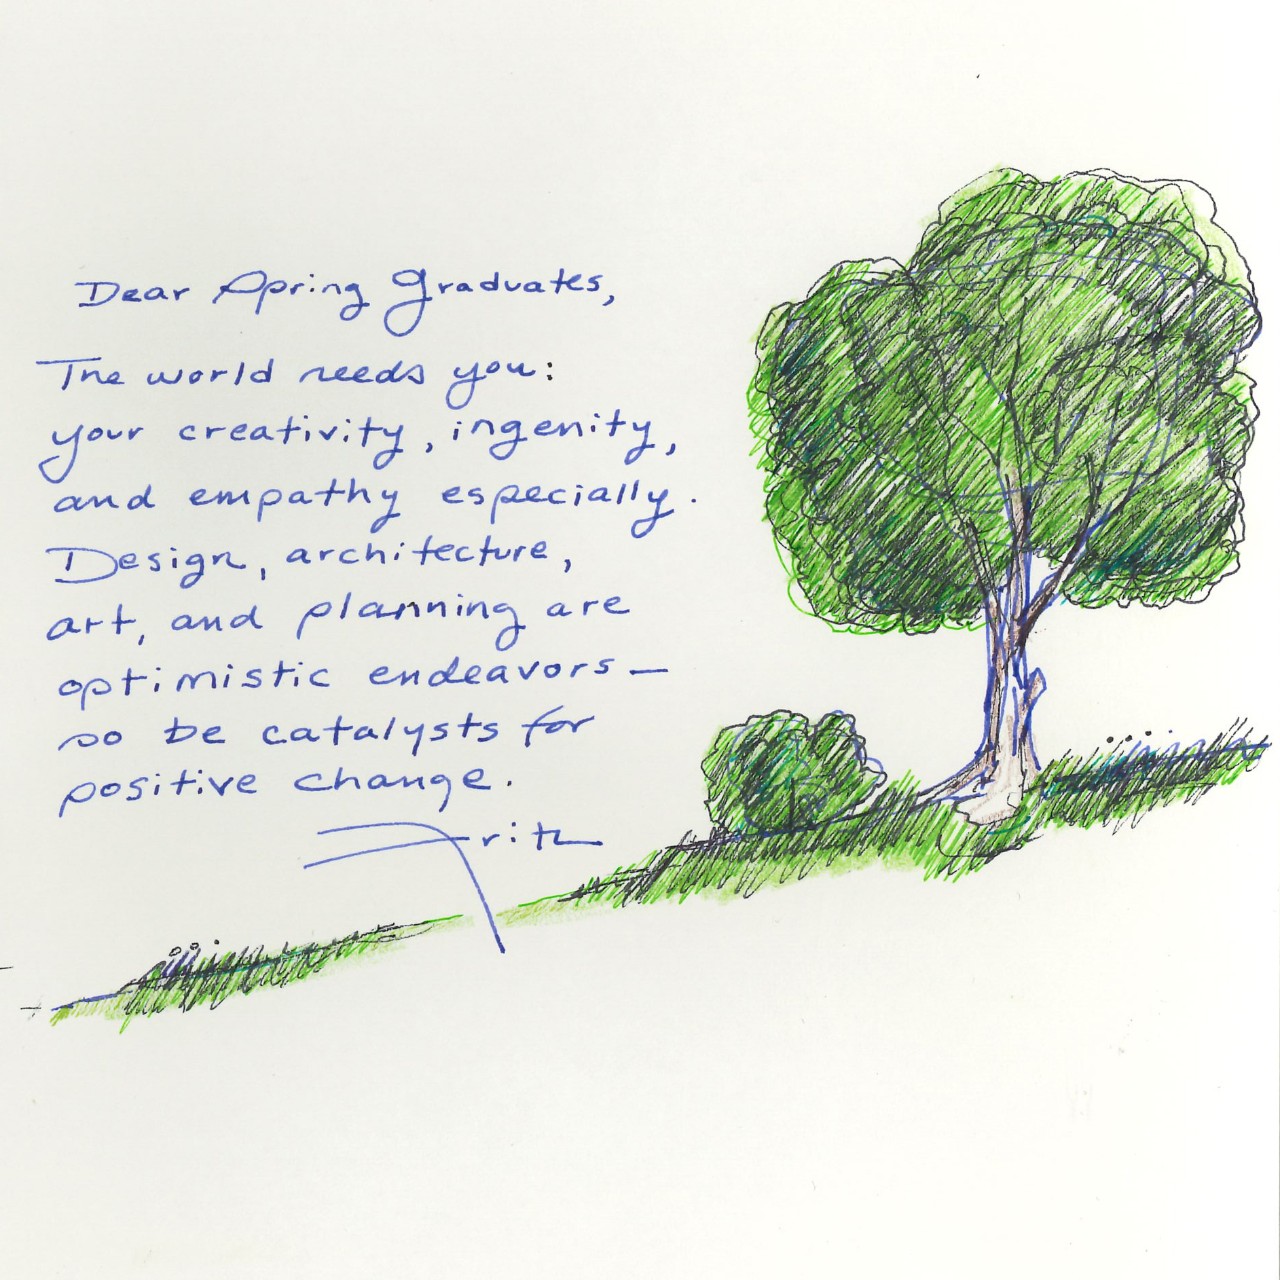 Dear Spring Graduates,
The world needs you:
your creativity, ingenity,
and empathy especially.
Design, architecture,
art, and planning are
optimistic endeavors—
so be catalysts for
positive change.
Fritz